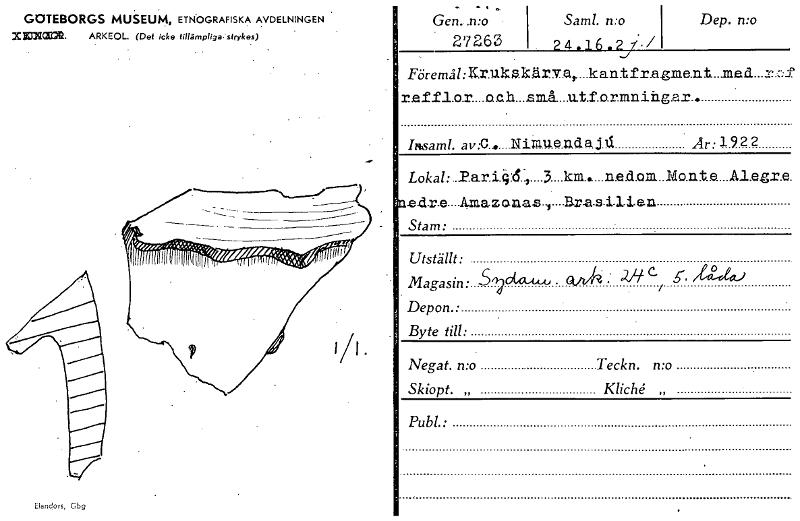 GÖTEBORGS MUSEUM, ETNOGRAFISKA AVDELNINGEN
ARKEOL. (Det icke tillämpliga strykes)
1/1.
Elanders, Gbg
Gen. n:o Saml. n:o Dep. n:o
27263 24.16.2
Föremål: Krukskärva, kantfragment med ref
refflor och små utformningar.
Insaml. av: C. Nimuendajú År: 1922
Lokal: Pariçó, 3 km. nedom Monte Alegre
nedre Amazonas, Brasilien
Stam:
Utställt:
Magasin: Sydam. ark. 24C, 5. låda
Depon.:
Byte till:
Negat. n:o Teckn. n:o
Skiopt. „ Kliché „
Publ.: